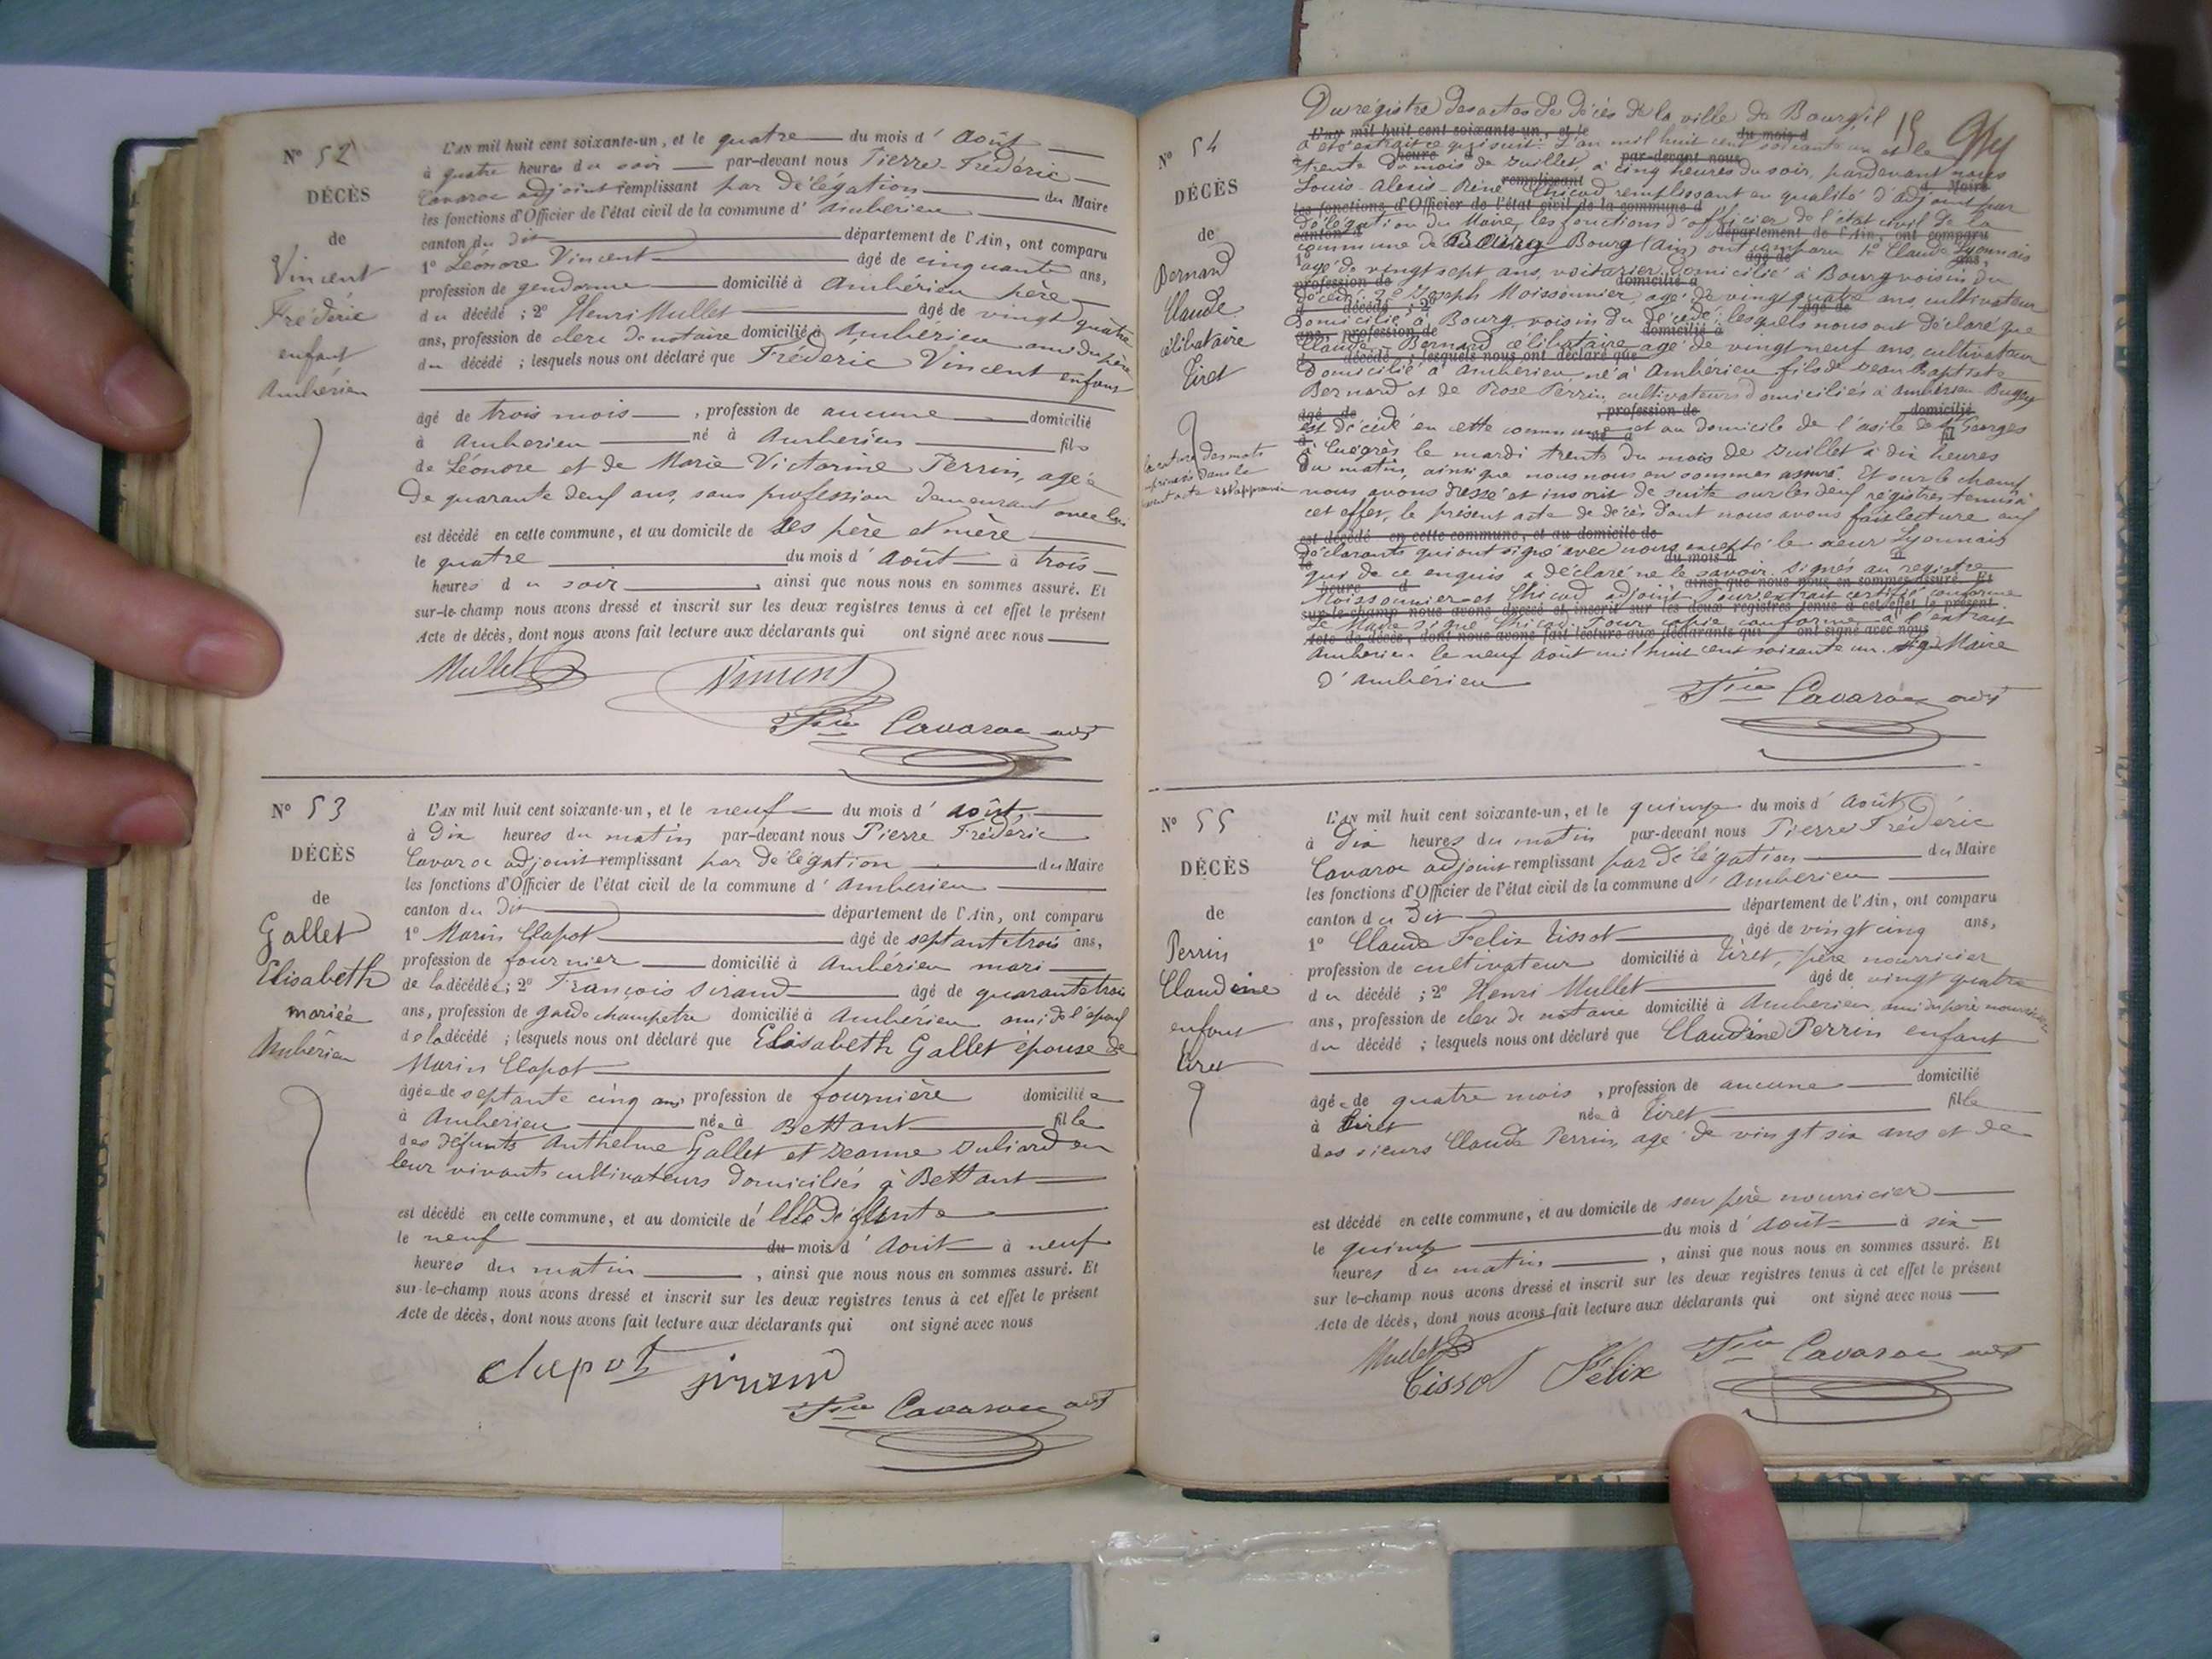 N° 52
DÉCÈS
de
Vincent
Fréderic
enfant
Ambérieu
L'AN mil huit cent soixante-un, et le quatre du mois d' Août
à quatre heures du soir par-devant nous Pierre Fréderic
Cavaroc adjoint remplissant par délégation du Maire
les fonctions d'Officier de l'état civil de la commune d' Ambérieu
canton du dit département de l'Ain, ont comparu
1° Léonore Vincent âgé de cinquante ans,
profession de gendarme domicilié à Ambérieu père
du décédé ; 2° Henri Mullet âgé de vingt quatre
ans, profession de clerc de notaire domicilié à Ambérieu ami du père
du décédé ; lesquels nous ont déclaré que Fréderic Vincent enfant
âgé de trois mois , profession de aucune domicilié
à Amberieu né à Ambérieu fils
de Léonore et de Marie Victorine Perrin, agée
de quarante deux ans, sans profession demeurant avec lui
est décédé en cette commune, et au domicile de ses père et mère
le quatre du mois d' Août à trois
heures du soir , ainsi que nous nous en sommes assuré. Et
sur-le-champ nous avons dressé et inscrit sur les deux registres tenus à cet effet le présent
Acte de décès, dont nous avons fait lecture aux déclarants qui ont signé avec nous
Mullet Vincent
Cavaroc adjt
N° 53
DÉCÈS
de
Gallet
Elisabeth
mariée
Ambérieu
L'AN mil huit cent soixante-un, et le neuf du mois d' Août
à dix heures du matin par-devant nous Pierre Fréderic
Cavaroc adjoint remplissant par délégation du Maire
les fonctions d'Officier de l'état civil de la commune d' Amberieu
canton du dit département de l'Ain, ont comparu
1° Marin Clapot âgé de septante trois ans,
profession de fournier domicilié à Ambérieu mari
de la décédée ; 2° François Sirand âgé de quarante trois
ans, profession de garde champetre domicilié à Ambérieu ami de l'époux
de la décédé ; lesquels nous ont déclaré que Elisabeth Gallet épouse de
Marin Clapot
âgée de septante cinq ans profession de fournière domiciliée
à Ambérieu née à Bettant fille
des défunts Anthelme Gallet et Jeanne Juliard en
leur vivants cultivateurs domiciliés à Bettant
est décédé en cette commune, et au domicile de
le neuf du mois d' Août à neuf
heures du matin , ainsi que nous nous en sommes assuré. Et
sur-le-champ nous avons dressé et inscrit sur les deux registres tenus à cet effet le présent
Acte de décès, dont nous avons fait lecture aux déclarants qui ont signé avec nous
clapot
Cavaroc adjt
N° 54
DÉCÈS
de
Bernard
Claude
célibataire
Tiret
Du registre des actes de décès de la ville de Bourg, il
a été extrait ce qui suit: L'an mil huit cent soixante un et le
trente du mois de Juillet, à cinq heures du soir, pardevant nous
Louis-Alexis-Réné Chicod remplissant en qualité d'adjoint par
délégation du Maire, les fonctions d'officier de l'état civil de la
commune de Bourg (Ain) ont comparu 1° Claude Lyonnais
agé de vingt sept ans, voiturier domicilié à Bourg voisin du
décédé 2° Joseph Moissonnier, agé de vingt quatre ans, cultivateur
domicilié à Bourg voisin du décédé; lesquels nous ont déclaré que
Claude Bernard célibataire, agé de vingt neuf ans, cultivateur
domicilié à Ambérieu, né à Ambérieu fils de Jean Baptiste
Bernard et de Rose Perrin, cultivateurs domiciliés à Ambérieu Bugey
est décédé en cette commune et au domicile de l'asile de St Georges
le mardi trente du mois de Juillet à dix heures
du matin, ainsi que nous nous en sommes assuré. Et sur le champ
nous avons dressé et inscrit de suite sur les deux registres tenus à
cet effet, le présent acte de décès dont nous avons fait lecture aux
déclarants qui ont signé avec nous excepté le sieur Lyonnais
qui de ce enquis a déclaré ne le savoir. Signés au registre
Moissonnier et Chicod adjoint. Pour extrait certifié conforme
Le Maire signé Chicod. Pour copie conforme à l'extrait
Ambérieu le neuf Août mil huit cent soixante un. Maire
d'Ambérieu
Cavaroc adjt
N° 55
DÉCÈS
de
Perrin
Claudine
enfant
Tiret
L'AN mil huit cent soixante-un, et le quinze du mois d' Août
à dix heures du matin par-devant nous Pierre Fréderic
Cavaroc adjoint remplissant par délégation du Maire
les fonctions d'Officier de l'état civil de la commune d' Amberieu
canton du dit département de l'Ain, ont comparu
1° Claude Felix Tissot âgé de vingt cinq ans,
profession de cultivateur domicilié à Tiret, père nourricier
du décédé ; 2° Henri Mullet âgé de vingt quatre
ans, profession de clerc de notaire domicilié à Amberieu, ami du père nourricier
du décédé ; lesquels nous ont déclaré que Claudine Perrin enfant
âgée de quatre mois , profession de aucune domicilié
à Tiret née à Tiret fille
des sieurs Claude Perrin, agé de vingt six ans et de
est décédé en cette commune, et au domicile de son père nourricier
le quinze du mois d' Août à six
heures du matin , ainsi que nous nous en sommes assuré. Et
sur le-champ nous avons dressé et inscrit sur les deux registres tenus à cet effet le présent
Acte de décès, dont nous avons fait lecture aux déclarants qui ont signé avec nous
Mullet
Tissot Félix Cavaroc adjt